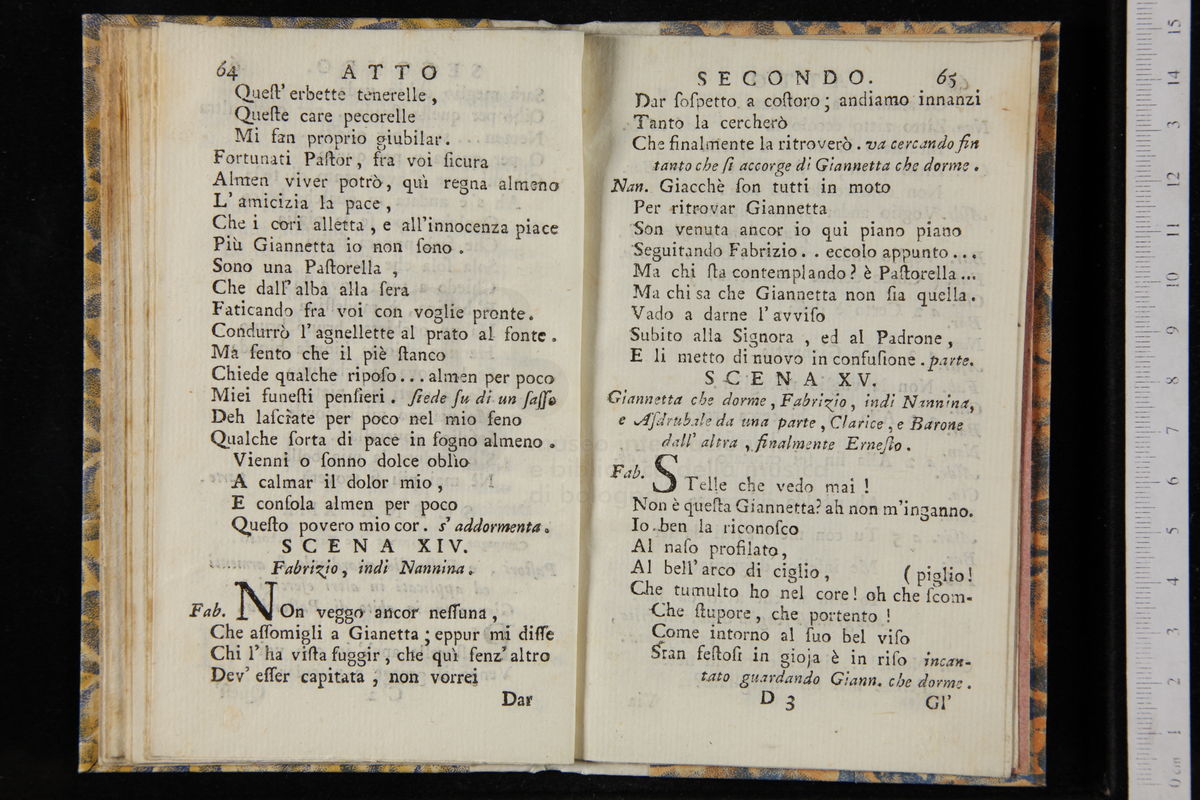 64 ATTO
Queſt' erbette tenerelle,
Queſte care pecorelle
Mi fan proprio giubilar.
Fortunati Paſtor, fra voi ſicura
Almen viver potrò, quì regna almeno
L' amicizia la pace,
Che i cori alletta, e all'innocenza piace
Più Giannetta io non ſono.
Sono una Paſtorella,
Che dall' alba alla ſera
Faticando fra voi con voglie pronte.
Condurrò l'agnellette al prato al fonte.
Ma ſento che il piè ſtanco
Chiede qualche ripoſo... almen per poco
Miei funeſti penſieri. ſiede ſu di un ſaſſo
Deh laſciate per poco nel mio ſeno
Qualche ſorta di pace in ſogno almeno.
Vienni o ſonno dolce oblìo
A calmar il dolor mio,
E conſola almen per poco
Queſto povero mio cor. s' addormenta.
SCENA XIV.
Fabrizio, indi Nannina.
Fab. NOn veggo ancor neſſuna,
Che aſſomigli a Gianetta; eppur mi diſſe
Chi l' ha viſta fuggir, che quì ſenz' altro
Dev' eſſer capitata, non vorrei
Dar
SECONDO. 65
Dar ſoſpetto a coſtoro; andiamo innanzi
Tanto la cercherò
Che finalmente la ritroverò. va cercando fin
tanto che ſi accorge di Giannetta che dorme.
Nan. Giacchè ſon tutti in moto
Per ritrovar Giannetta
Son venuta ancor io qui piano piano
Seguitando Fabrizio.. eccolo appunto...
Ma chi ſta contemplando? è Paſtorella...
Ma chi sa che Giannetta non ſia quella.
Vado a darne l'avviſo
Subito alla Signora, ed al Padrone,
E li metto di nuovo in confuſione. parte.
SCENA XV.
Giannetta che dorme, Fabrizio, indi Nannina,
e Aſdrubale da una parte, Clarice, e Barone
dall' altra, finalmente Erneſto.
Fab. STelle che vedo mai!
Non è queſta Giannetta? ah non m'inganno.
Io ben la riconoſco
Al naſo profilato,
Al bell' arco di ciglio, (piglio!
Che tumulto ho nel core! oh che ſcom-
Che ſtupore, che portento!
Come intorno al ſuo bel viſo
Stan feſtoſi in gioja è in riſo incan-
tato guardando Giann. che dorme.
D 3 Gl'